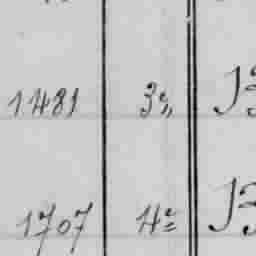 1481 3e,,
1707 4e=